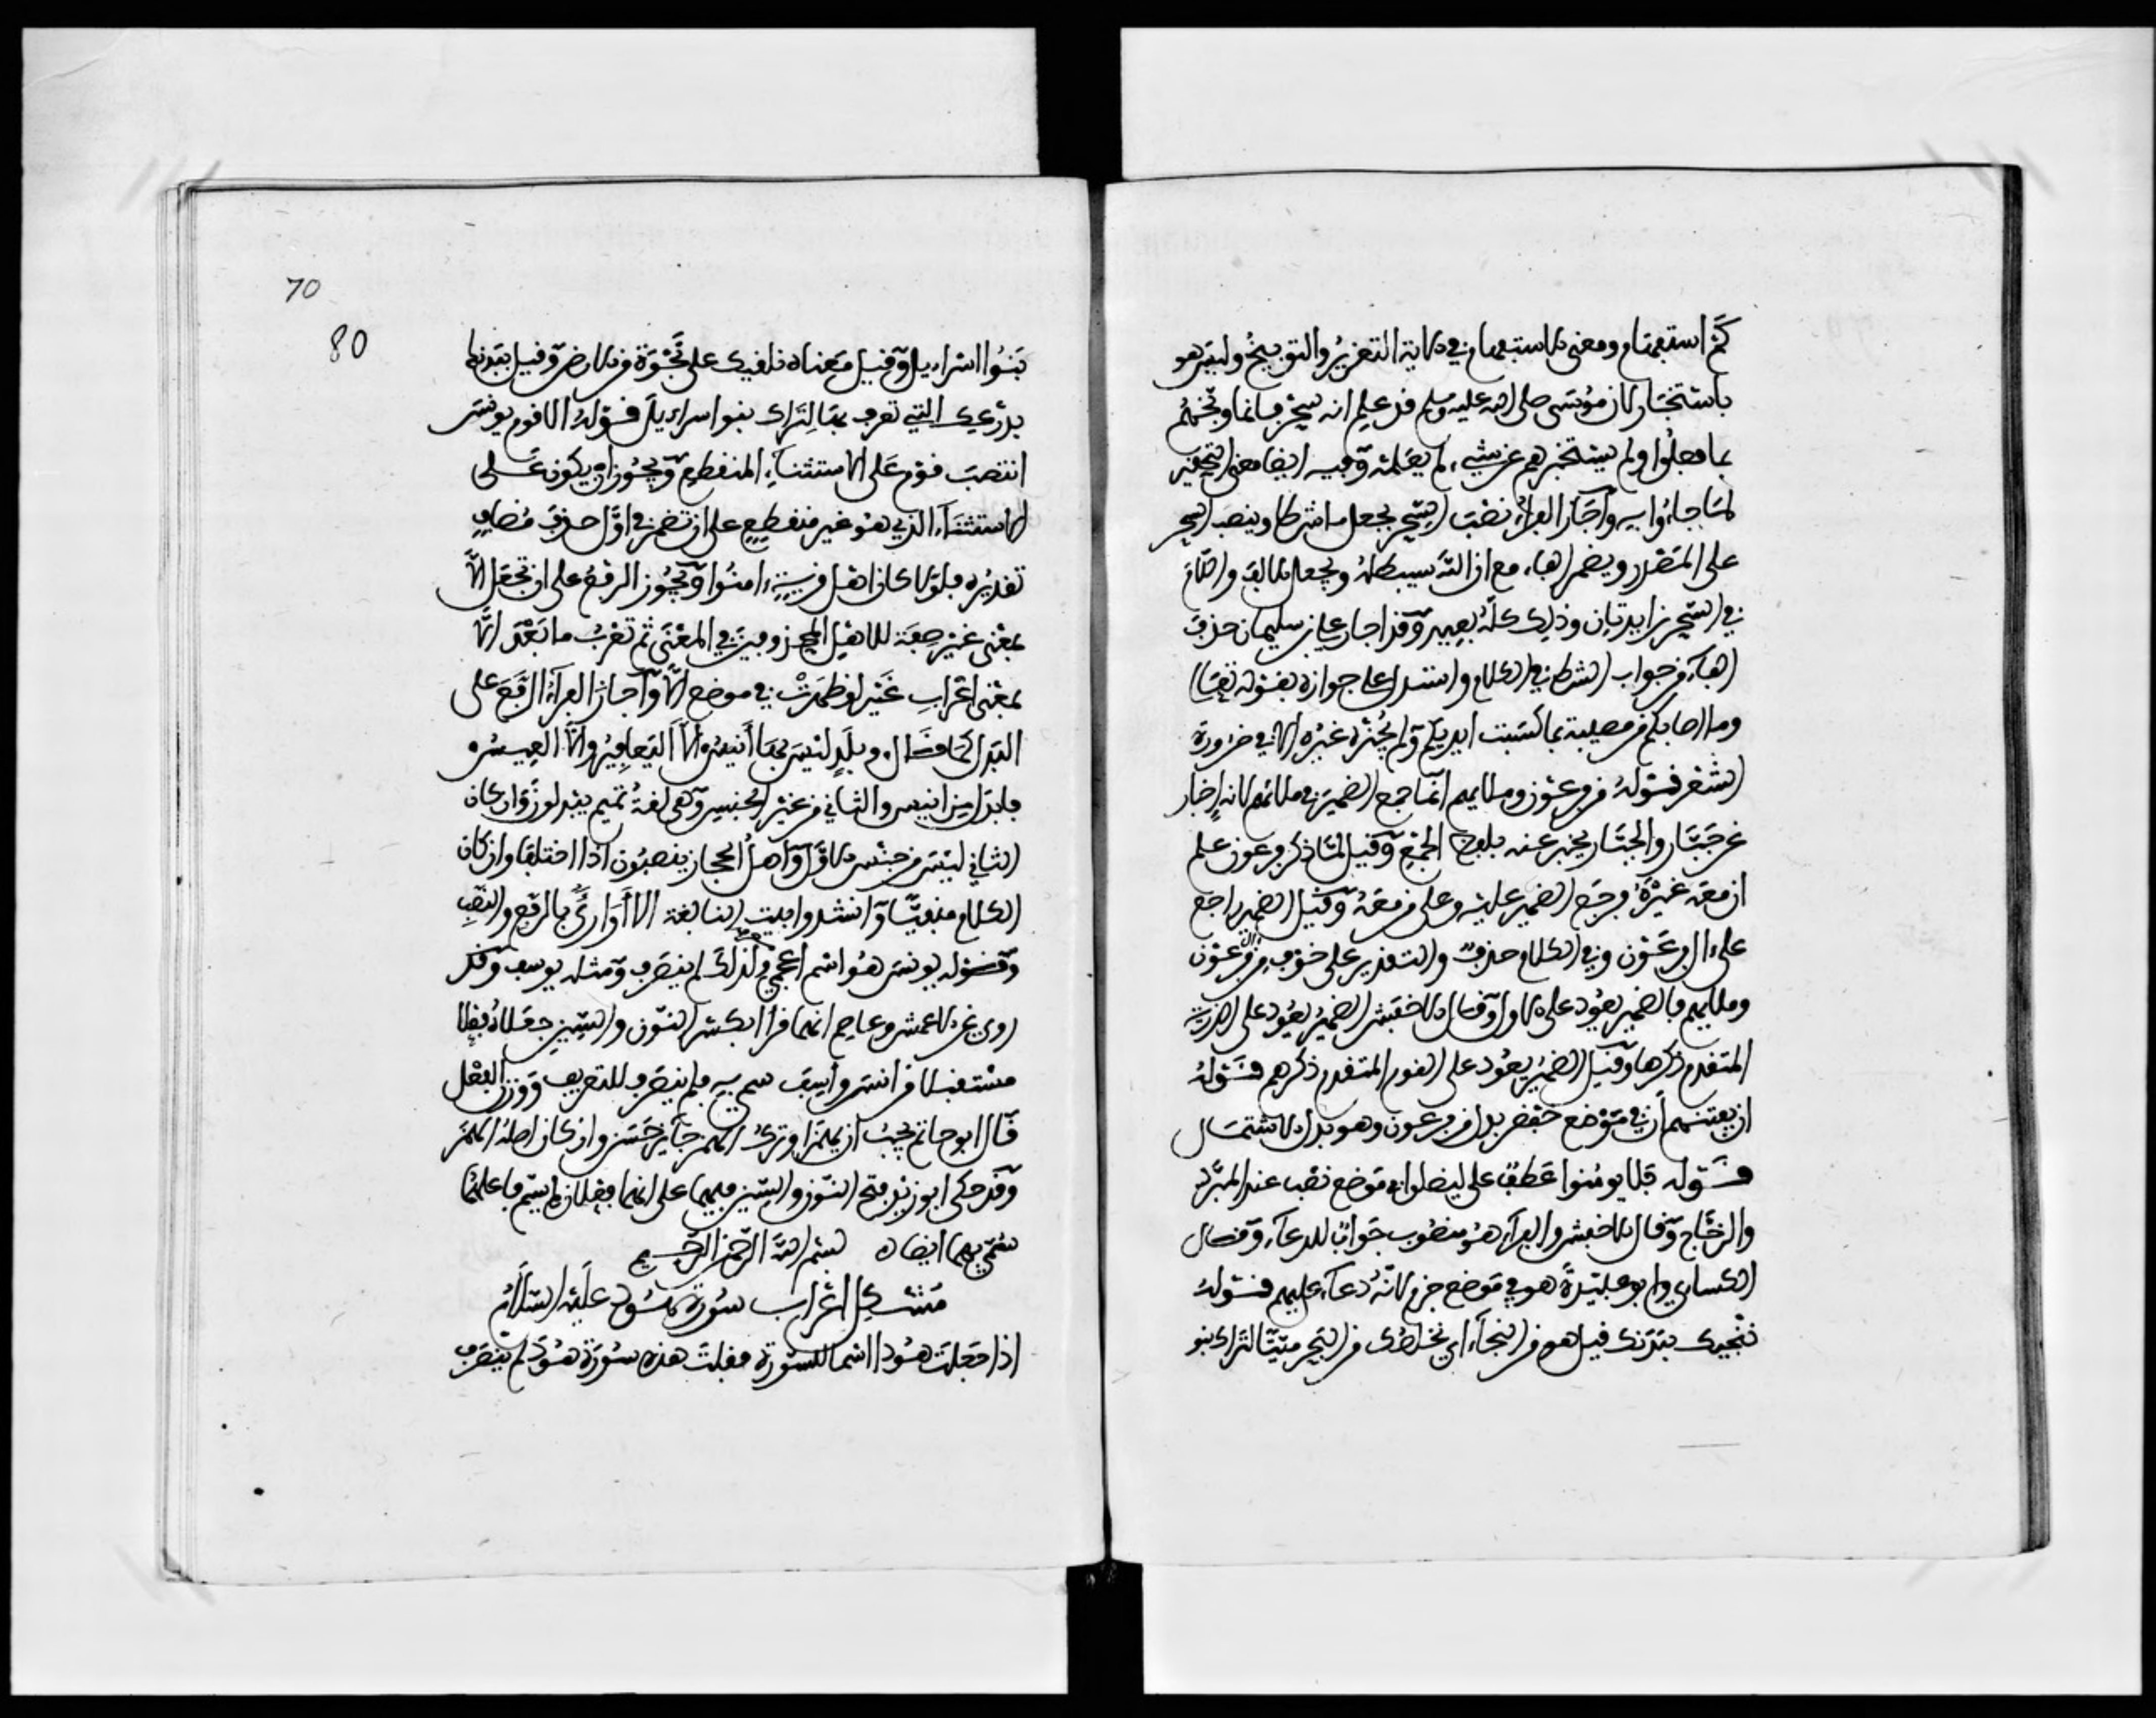 كم استفهام ومعنى الاستفهام في الاية التقرير والتوبيخ وليس هو
باستخبار لان موسى صلى الله عليه وسلم قد علم انه سحر فانما وبخهم
بما فعلوا ولم يستخبرهم عن شيء لم يعلمه وفيه ايضا معنى التحقير
لما جاءوا به وأجاز الفراء نصب السحر بجعل ما شرطا وينصب السحر
على المصدر ويضمر الهاء مع ان الله سيبطله ويجعل الالف واللام
في السحر زايدتان وذلك كله بعيد وقد اجاز علي بن سليمان حذف
الهاء من جواب الشرط في الكلام واستدل على جوازه بقوله تعالى
وما اصابكم من مصيبة بما كسبت ايديكم ولم يجزه غيره الا في ضرورة
الشعر قوله من فرعون وملايهم انما جمع الضمير في ملائهم لانه إخبار
عن جبار والجبار يخبر عنه بلفظ الجمع وقيل لما ذكر فرعون علم
ان معه غيره فرجع الضمير عليه وعلى من معه وقيل الضمير راجع
على ال فرعون وفي الكلام حذف والتقدير على خوف من ال فرعون
وملايهم فالضمير يعود على الاول وقال الاخفش الضمير يعود على الذرية
المتقدم ذكرها وقيل الضمير يعود على القوم المتقدم ذكرهم قوله
ان يفتنهم أن في موضع خفض بدل من فرعون وهو بدل الاشتمال
قوله فلا يومنوا عطف على ليضلوا في موضع نصب عند المبرد
والزجاج وقال الاخفش والفراء هو منصوب جواب للدعاء وقال
الكساي وابو عبيدة هو في موضع جزم لانه دعاء عليهم قوله
ننجيك ببدنك قيل هو من النجاء اي نخلصك من البحر ميتا لتراك بنو
70
80
بنوا اسراءيل وقيل معناه نلقيك على نجوة من الارض وقيل ببدنك
بدرعك التي تعرف بها لتراك بنوا اسراءيل قوله الا قوم يونس
انتصب قوم على الاستثناء المنقطع ويجوز ان يكون على
الاستثناء الذي هو غير منقطع على ان تضمر في اول حذف مضاف
تقديره فلولا كان اهل قرية ءامنوا ويجوز الرفع على ان تجعل الا
بمعنى غير صفة للاهل المحذوفين في المعنى ثم تعرب ما بعد الا
بمعنى اعراب غير لو ظهرت في موضع الا وأجاز الفراء الرفع على
البدل كما قال وبلد ليس بها أنيس إلا اليعافير وإلا العيس و
فابدل من انيس والثاني من غير الجنس وهي لغة تميم يبدلون وان كان
الثاني ليس من جنس الاول وأهل الحجاز ينصبون اذا اختلفا وان كان
الكلام منفيا وانشدوا بيت النابغة الا أواري بالرفع والنصب
وقوله يونس هو اسم أعجمي ولذلك لم ينصرف ومثله يوسف وقد
روي عن الاعمش وعاصم انهما قرأا بكسر النون والسين جعلاه فعلا
مستقبلا من انس وأسف سمي به فلم ينصرف للتعريف ووزن الفعل
قال ابو حاتم يجب ان يهمزا وترك الهمز جايز حسن وان كان اصله الهمز
وقد حكى ابو زيد فتح النون والسين فيهما على انهما فعلان لم يسم فاعلهما
سمي بهما ايضا ه بسم الله الرحمن الرحيم
مشكل اعراب سورة هود عليه السلام
اذا جعلت هود اسما للسورة فقلت هذه سورة هود لم ينصرف